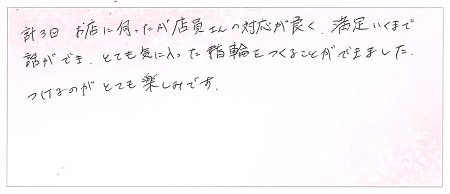 計3回 お店に伺ったが店員さんの対応が良く、満足いくまで
話ができ、とても気に入った指輪をつくることができました。
つけるのがとても楽しみです。